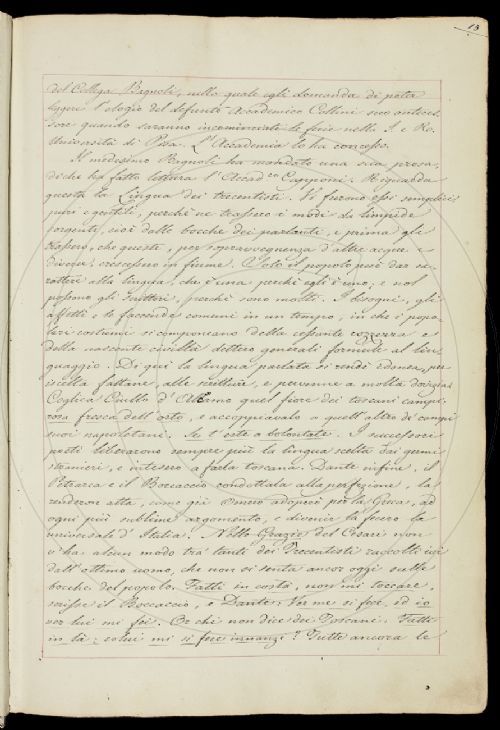 13
del Collega Bagnoli, nella quale egli domanda di poter
leggere l'elogio del defunto Accademico Collini suo anteces-
sore quando saranno incominciate le ferie nella I. e R.
Università di Pisa. L'Accademia lo ha concesso.
Il medesimo Bagnoli ha mandato una sua prosa,
di che ha fatto lettura l'Accad.co Capponi. Riguarda
questa la Lingua dei trecentisti. Vi furono essi semplici
puri e gentili, perchè ne trassero i modi da limpide
sorgenti, cioè dalle bocche dei parlanti, e prima gli
trassero, che queste, per sopravvegnenza d'altre acque e
diverse, crescessero in fiume. Solo il popolo può dar ca-
rattere alla lingua, che è una perchè egli è uno; e nol
possono gli scrittori, perchè sono molti. I bisogni, gli
affetti e le faccende comuni in un tempo, in che i popo-
lari costumi si componeano della cessante rozzezza e
della nascente civiltà dettero generali formule al lin-
guaggio. Di qui la lingua parlata si rendè idonea, per
iscelta fattane, alle scritture, e pervenne a molta dovizia.
Coglica Ciullo d'Alcamo quel fiore dei toscani campi,
rosa fresca dell'orto, e accoppiavalo a quell'altro di campi
suoi napoletani. Se t'este a bolontate. I successori
poeti liberarono sempre più la lingua scelta dai germi
stranieri, e intesero a farla toscana. Dante infine, il
Petrarca e il Boccaccio condottala alla perfezione, la
renderono atta, come già Omero adoperò per la Greca, ad
ogni più sublime argomento, e divenir la fecero la
universale d'Italia. Nelle Grazie del Cesari non
v'ha alcun modo tra' tanti dei Trecentisti raccolti ivi
dall'ottimo uomo, che non si senta ancor oggi sulle
bocche del popolo. Fatti in costà, non mi toccare,
scrisse il Boccaccio, e Dante: Ver me si fece, ed io
ver lui mi fei. Or chi non dice dei Toscani. Fatti
in là: colui mi si fece innanzi? Tutte ancora le